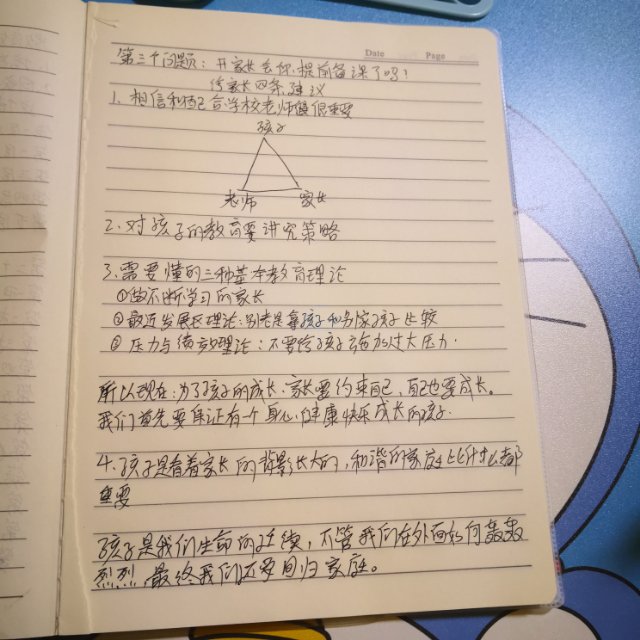 Date Page
第三个问题：开家长会你提前备课了吗？
给家长四条建议
1、相信和配合学校老师很重要
孩子
老师 家长
2、对孩子的教育要讲究策略
3、需要懂的三种基本教育理论
①做不断学习的家长
②最近发展区理论：别老是拿孩子和别家孩子比较
③压力与绩效理论：不要给孩子施加过大压力.
所以现在：为了孩子的成长，家长要约束自己，自己也要成长。
我们首先要保证有一个身心健康快乐成长的孩子.
4、孩子是看着家长的背影长大的，和谐的家庭比什么都
重要
孩子是我们生命的延续，不管我们在外面如何轰轰
烈烈，最终我们还要回归家庭。